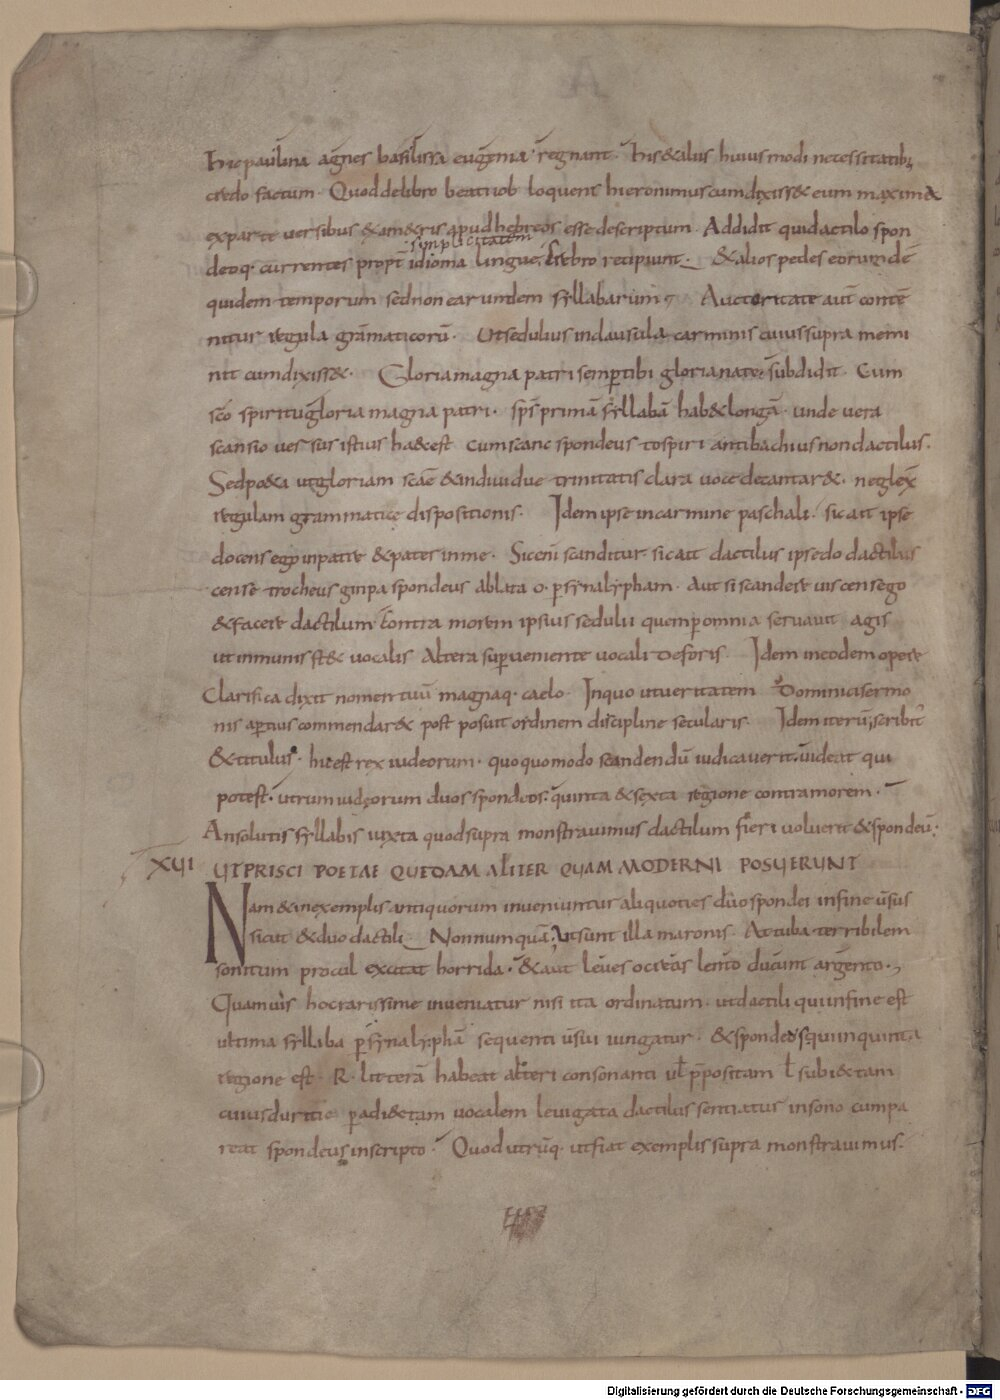 Hic paulina agnes basilissa eugenia regnant. His & aliis huius modi necessitatib;
credo factum. Quod delibro beati iob loquens hieronimus cum dixiss& eum maxima
ex parte uersibus & in &ris apud hebreos esse descriptum. Addidit qui dactilo spon
simplicitatem
deoq. currentes propt idioma lingue. Crebro recipiunt. & alios pedes eorundē
quidem temporum sed non earundem syllabarum. Auctoritate aut contē
nitur regula grāmaticorū. Ut sedulius in clausula carminis cuius supra memi
nit cum dixiss&. Gloria magna patri semp tibi gloria nate. subdidit. Cum
sc̄o spiritu gloria magna patri. sps primā syllabā hab& longā. unde uera
scansio uersus istius haec est cum sanc spondeus to spiri antibachius non dactilus.
Sed po&a ut gloriam scāe & indiuidue trinitatis clara uoce decantar&. neglex
regulam grammatice dispositionis. Idem ipse in carmine paschali. sic ait ipse
docens ego in patre & pater in me. Sic eni scanditur. sic ait dactilus ipse do dactilus
cense trocheus ginpa spondeus ablata o. p synalypham. Aut si scandere uis cens ego
& facere dactilum contra morem ipsius sedulii quem p omnia seruauit agis
ut inmunis st& uocalis altera superueniente uocali deforis. Idem in eodem opere
Clarifica dixit nomen tuū magnaq. caelo. In quo ut ueritatem dominici sermo
nis aptius commendar& post posuit ordinem discipline secularis. Idem iterū scribit
& titulus. hic est rex iudeorum. quo quomodo scandendū iudicauerit. uideat qui
potest. utrum iudeorum duos spondeos. quinta & sexta regione contra morem.
An solutis syllabis iuxta quod supra monstrauimus dactilum fieri uoluerit & spondeū.
XVI UT PRISCI POETAE QUEDAM ALITER QUAM MODERNI POSUERUNT
Nam & in exemplis antiquorum inueniuntur aliquoties duo spondei in fine ūsus
sicut & duo dactili Nonnumquā; ut sunt illa maronis. At tuba terribilem
sonitum procul excitat horrida. & aut leues ocreas lento ducunt argento.
Quamuis hoc rarissime inueniatur nisi ita ordinatum. ut dactili qui in fine est
ultima syllaba p synalyphā sequenti ūsui iungatur. & spondeus qui in quinta
regione est. R. litterā habeat alteri consonanti ul p̄positam l subiectam
cuius duritie p adiectam uocalem leuigata dactilus sentiatur in sono cumpa
reat spondeus in scripto. Quod utrūq. ut fiat exemplis supra monstrauimus.
Digitalisierung gefördert durch die Deutsche Forschungsgemeinschaft - DFG